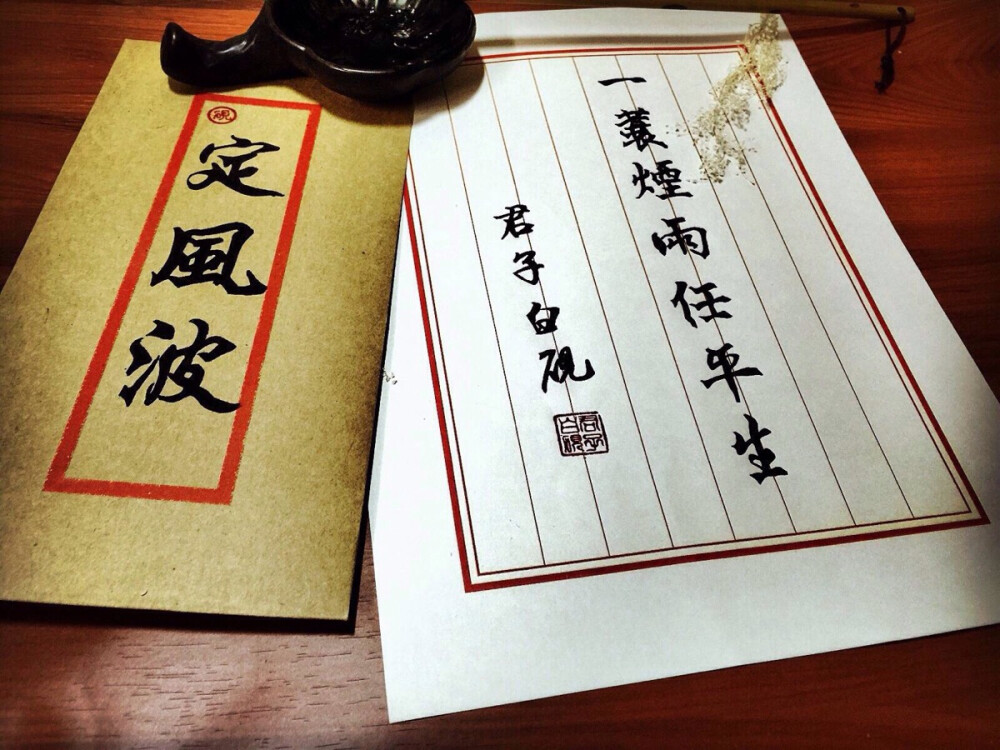 硯
定風波
一蓑煙雨任平生
君子白硯
君子
白硯